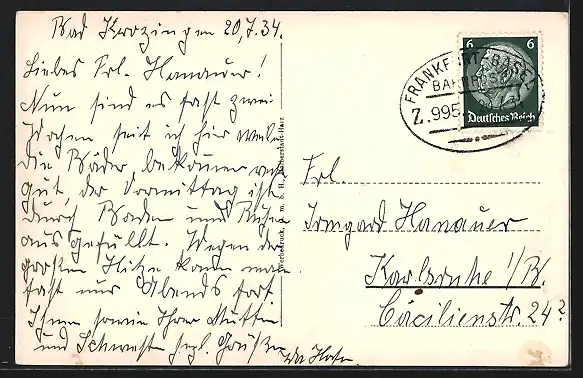 Bad Krozingen 20.7.34.
Liebes Frl. Hanauer!
Nun sind es fast zwei
Wochen seit ich hier weile
die Bäder bekommen recht
gut, der Vormittag ist
durch Baden und Ruhen
ausgefüllt. Wegen der
großen Hitze kann man
fast nur Abends fort
Ihnen sowie Ihrer Mutter
und Schwester hzl. Grüße
6 6
Deutsches Reich
FRANKFURT-BASEL
BAHNPOST
Z.995
Frl.
Irmgard Hanauer
Karlsruhe i/B.
Cäcilienstr. 24?